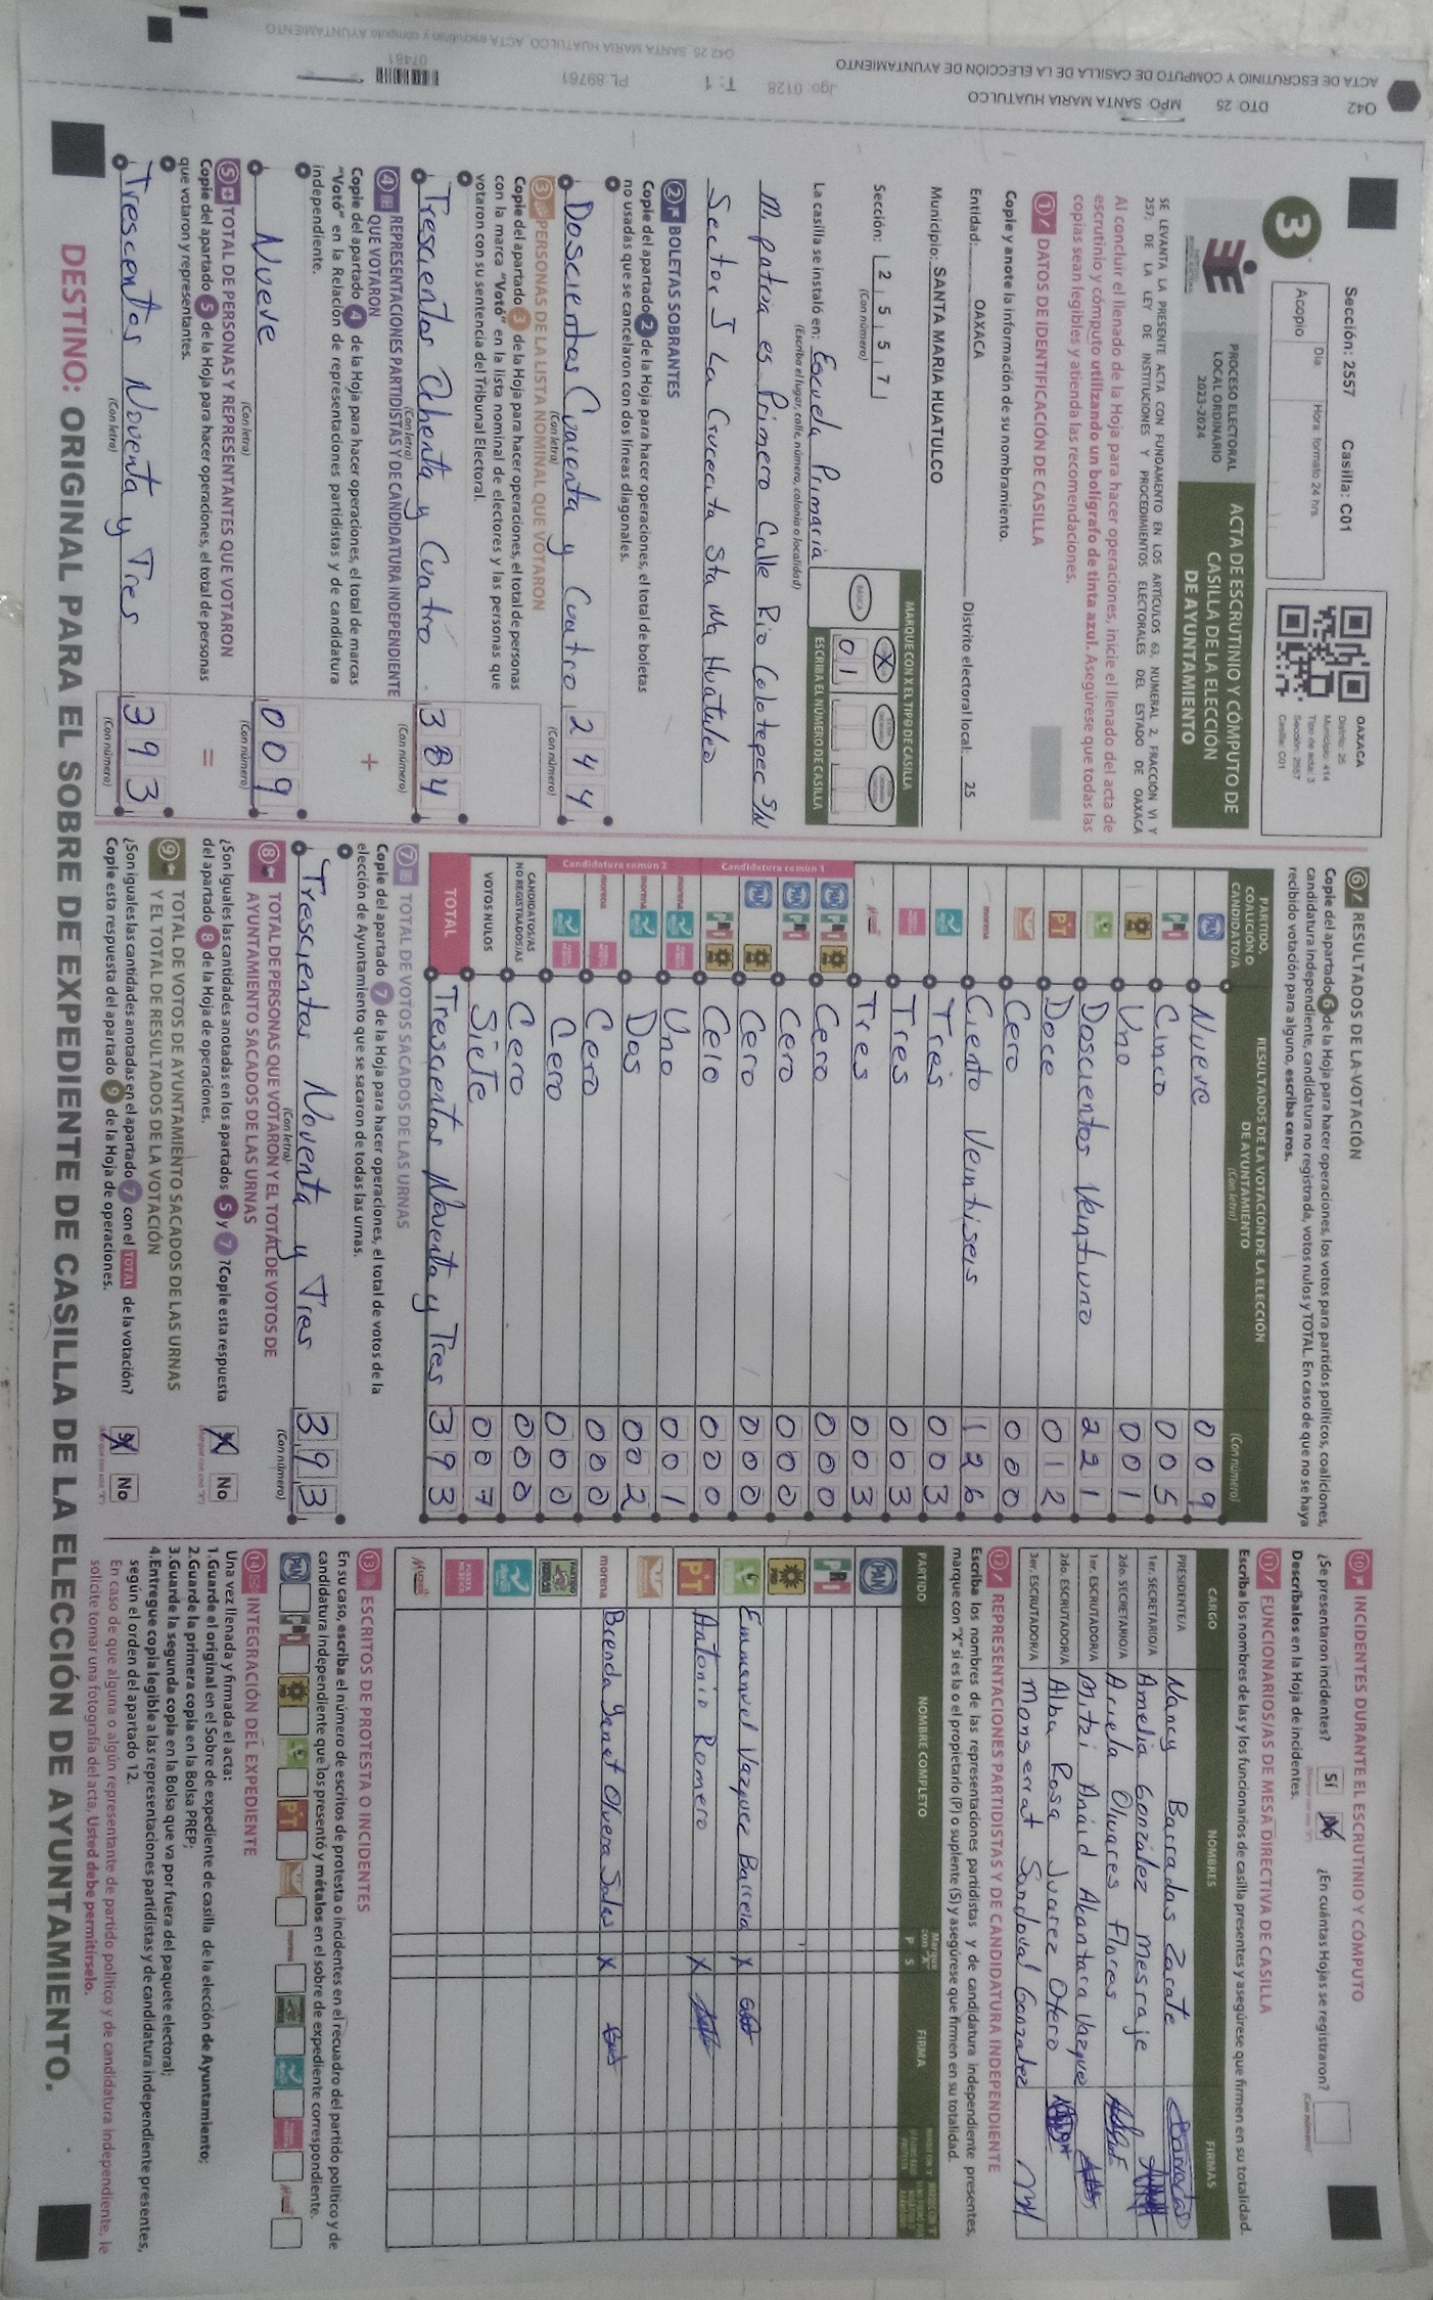 Sección: 2557 Casilla: C01
3
Día: Hora: formato 24 hrs.
Acopio
OAXACA
Distrito: 25
Municipio: 414
Tipo de acta: 3
Sección: 2557
Casilla: C01
PROCESO ELECTORAL
LOCAL ORDINARIO
2023-2024
ACTA DE ESCRUTINIO Y CÓMPUTO DE
CASILLA DE LA ELECCIÓN
DE AYUNTAMIENTO
SE LEVANTA LA PRESENTE ACTA CON FUNDAMENTO EN LOS ARTÍCULOS 63, NUMERAL 2, FRACCIÓN VI Y
257; DE LA LEY DE INSTITUCIONES Y PROCEDIMIENTOS ELECTORALES DEL ESTADO DE OAXACA
Al concluir el llenado de la Hoja para hacer operaciones, inicie el llenado del acta de
escrutinio y cómputo utilizando un bolígrafo de tinta azul. Asegúrese que todas las
copias sean legibles y atienda las recomendaciones.
1 DATOS DE IDENTIFICACIÓN DE CASILLA
Copie y anote la información de su nombramiento.
Entidad: OAXACA Distrito electoral local: 25
Municipio: SANTA MARIA HUATULCO
Sección: 2 5 5 7
(Con número)
MARQUE CON X EL TIPO DE CASILLA
BÁSICA X
ESCRIBA EL NÚMERO DE CASILLA
0 1
La casilla se instaló en: Escuela Primaria
(Escriba el lugar, calle, número, colonia o localidad)
Mi patria es Primero Calle Rio Colotepec S/N
Sector J La Crucecita Sta Ma Huatulco
2 BOLETAS SOBRANTES
Copie del apartado 2 de la Hoja para hacer operaciones, el total de boletas
no usadas que se cancelaron con dos líneas diagonales.
Doscientos Cuarenta y Cuatro 2 4 4
(Con letra) (Con número)
3 PERSONAS DE LA LISTA NOMINAL QUE VOTARON
Copie del apartado 3 de la Hoja para hacer operaciones, el total de personas
con la marca "Votó" en la lista nominal de electores y las personas que
votaron con su sentencia del Tribunal Electoral.
Trescientos Ochenta y Cuatro 3 8 4
(Con letra) (Con número)
4 REPRESENTACIONES PARTIDISTAS Y DE CANDIDATURA INDEPENDIENTE
QUE VOTARON
Copie del apartado 4 de la Hoja para hacer operaciones, el total de marcas
"Votó" en la Relación de representaciones partidistas y de candidatura
independiente.
+
Nueve 0 0 9
(Con letra) (Con número)
5 TOTAL DE PERSONAS Y REPRESENTANTES QUE VOTARON
Copie del apartado 5 de la Hoja para hacer operaciones, el total de personas
que votaron y representantes.
=
Trescientos Noventa y Tres 3 9 3
(Con letra) (Con número)
6 RESULTADOS DE LA VOTACIÓN
Copie del apartado 6 de la Hoja para hacer operaciones, los votos para partidos políticos, coaliciones,
candidatura independiente, candidatura no registrada, votos nulos y TOTAL. En caso de que no se haya
recibido votación para alguno, escriba ceros.
PARTIDO,
COALICIÓN O
CANDIDATO/A
RESULTADOS DE LA VOTACIÓN DE LA ELECCIÓN
DE AYUNTAMIENTO
(Con letra) (Con número)
PAN Nueve 0 0 9
PRI Cinco 0 0 5
Uno 0 0 1
Doscientos Veintiuno 2 2 1
PT Doce 0 1 2
Cero 0 0 0
morena Ciento Veintiseis 1 2 6
Tres 0 0 3
Tres 0 0 3
Tres 0 0 3
Candidatura común 1
PAN PRI Cero 0 0 0
PAN PRI Cero 0 0 0
PAN Cero 0 0 0
PRI Cero 0 0 0
Candidatura común 2
morena Uno 0 0 1
morena Dos 0 0 2
morena Cero 0 0 0
Cero 0 0 0
CANDIDATOS/AS
NO REGISTRADOS/AS Cero 0 0 0
VOTOS NULOS Siete 0 0 7
TOTAL Trescientos Noventa y Tres 3 9 3
7 TOTAL DE VOTOS SACADOS DE LAS URNAS
Copie del apartado 7 de la Hoja para hacer operaciones, el total de votos de la
elección de Ayuntamiento que se sacaron de todas las urnas.
Trescientos Noventa y Tres 3 9 3
(Con letra) (Con número)
8 TOTAL DE PERSONAS QUE VOTARON Y EL TOTAL DE VOTOS DE
AYUNTAMIENTO SACADOS DE LAS URNAS
¿Son iguales las cantidades anotadas en los apartados 5 y 7 ?Copie esta respuesta
del apartado 8 de la Hoja de operaciones.
X No
9 TOTAL DE VOTOS DE AYUNTAMIENTO SACADOS DE LAS URNAS
Y EL TOTAL DE RESULTADOS DE LA VOTACIÓN
¿Son iguales las cantidades anotadas en el apartado 7 con el TOTAL de la votación?
Copie esta respuesta del apartado 9 de la Hoja de operaciones.
X No
10 INCIDENTES DURANTE EL ESCRUTINIO Y CÓMPUTO
¿Se presentaron incidentes? Sí No ¿En cuántas Hojas se registraron?
(Con número)
Descríbalos en la Hoja de incidentes.
11 FUNCIONARIOS/AS DE MESA DIRECTIVA DE CASILLA
Escriba los nombres de las y los funcionarios de casilla presentes y asegúrese que firmen en su totalidad.
CARGO NOMBRES FIRMAS
PRESIDENTE/A Nancy Barradas Zarate
1er. SECRETARIO/A Amelia González Mesraje
2do. SECRETARIO/A Ariela Olivares Flores
1er. ESCRUTADOR/A Mitzi Anáid Alcantara Vazquez
2do. ESCRUTADOR/A Alba Rosa Juarez Otero
3er. ESCRUTADOR/A Monserrat Sandoval Gonzalez
12 REPRESENTACIONES PARTIDISTAS Y DE CANDIDATURA INDEPENDIENTE
Escriba los nombres de las representaciones partidistas y de candidatura independiente presentes,
marque con "X" si es la o el propietario (P) o suplente (S) y asegúrese que firmen en su totalidad.
PARTIDO NOMBRE COMPLETO Marque con "X" P S FIRMA
PAN
PRI
PRD
Emmanuel Vazquez Barrera X
PT Antonio Romero X
morena Brenda Yanet Olvera Sales X
13 ESCRITOS DE PROTESTA O INCIDENTES
En su caso, escriba el número de escritos de protesta o incidentes en el recuadro del partido político y de
candidatura independiente que los presentó y métalos en el sobre de expediente correspondiente.
PAN PRI PT morena
14 INTEGRACIÓN DEL EXPEDIENTE
Una vez llenada y firmada el acta:
1.Guarde el original en el Sobre de expediente de casilla de la elección de Ayuntamiento;
2.Guarde la primera copia en la Bolsa PREP;
3.Guarde la segunda copia en la Bolsa que va por fuera del paquete electoral;
4.Entregue copia legible a las representaciones partidistas y de candidatura independiente presentes,
según el orden del apartado 12.
En caso de que alguna o algún representante de partido político y de candidatura independiente, le
solicite tomar una fotografía del acta, Usted debe permitírselo.
DESTINO: ORIGINAL PARA EL SOBRE DE EXPEDIENTE DE CASILLA DE LA ELECCIÓN DE AYUNTAMIENTO.
ACTA DE ESCRUTINIO Y CÓMPUTO DE CASILLA DE LA ELECCIÓN DE AYUNTAMIENTO
Q42 DTO: 25 MPO: SANTA MARIA HUATULCO
Jgo: 0128 T: 1 PL: 89761
07461
Q42 25 SANTA MARIA HUATULCO ACTA escrutinio y cómputo AYUNTAMIENTO